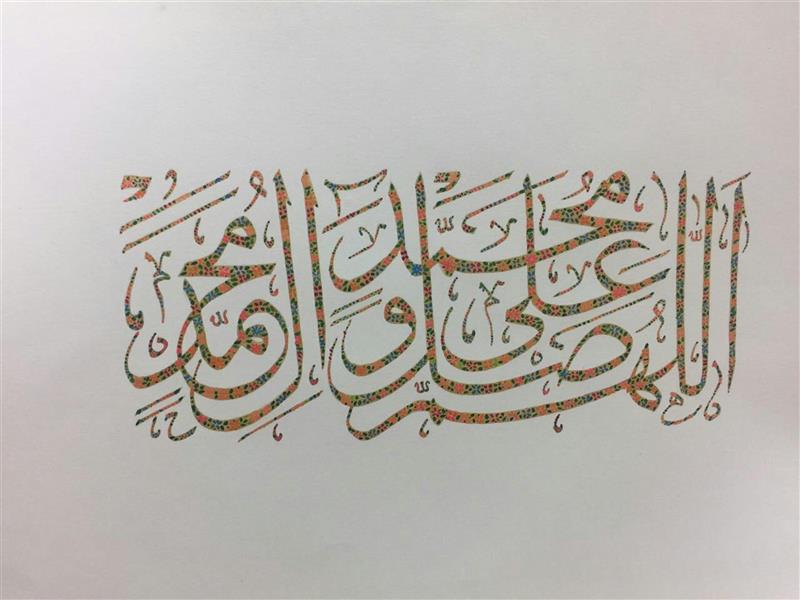 اَللّٰهُمَّ صَلِّ عَلىٰ مُحَمَّدٍ وَآلِ مُحَمَّدٍ